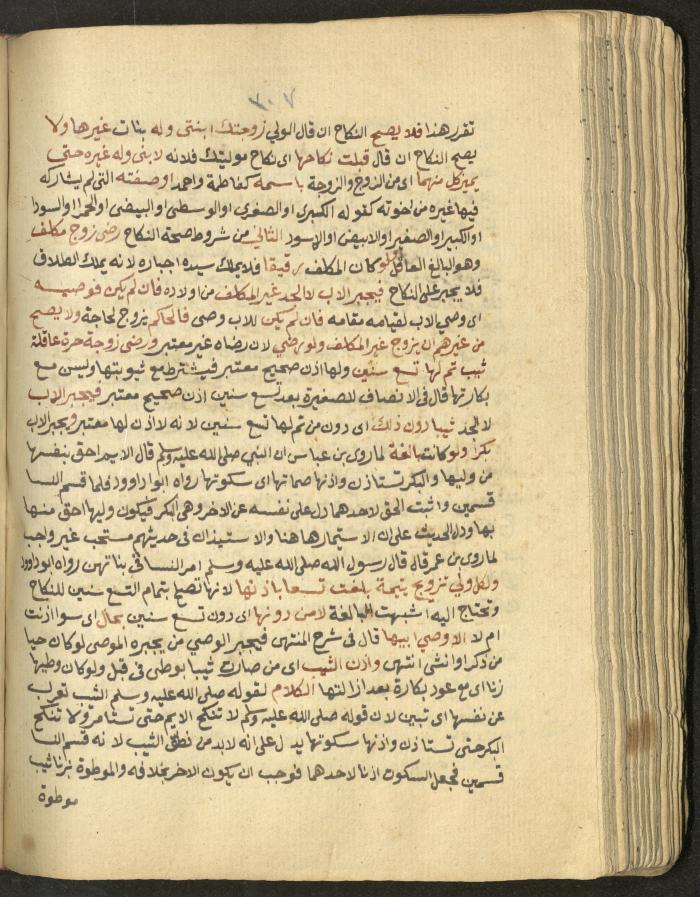 ٣٠٧
تقرر هذا فلا يصح النكاح ان قال الولي زوجتك ابنتى وله بنات غيرها ولا
يصح النكاح ان قال قبلت نكاحها اى نكاح موليتك فلانه لابنى وله غيره حتى
يميز كل منهما اى من الزوج والزوجة باسمه كفاطمة واحمد او صفته التى لم يشاركه
فيها غيره من اخوته كقوله الكبرى او الصغرى او الوسطى او البيضى او الحمرا او السودا
او الكبير او الصغير او الابيض او الاسود الثاني من شروط صحة النكاح رضى زوج مكلف
وهو البالغ العاقل ولو كان المكلف رقيقا فلا يملك سيده اجباره لانه يملك الطلاق
فلا يجبر على النكاح فيجبر الاب لا الجد غير المكلف من اولاده فان لم يكن فوصيه
اى وصي الاب لقيامه مقامه فان لم يكن للاب وصى فالحاكم يزوج لحاجة ولا يصح
من غيرهم ان يزوج غير المكلف ولو رضي لان رضاه غير معتبر ورضى زوجة حرة عاقلة
ثيب تم لها تسع سنين ولها اذن صحيح معتبر فيشترط مع ثيوبتها ويسن مع
بكارتها قال فى الانصاف للصغيرة بعد تسع سنين اذن صحيح معتبر فيجبر الاب
لا الجد ثيبا دون ذلك اى دون من تم لها تسع سنين لانه لا اذن لها معتبر ويجبر الاب
بكرا ولو كانت بالغة لما روى بن عباس ان النبي صلى الله عليه وسلم قال الايم احق بنفسها
من وليها والبكر تستاذن واذنها صماتها اى سكوتها رواه ابو داوود فلما قسم النسا
قسمين واثبت الحق لاحدهما دل على نفسه عن الاخر وهى البكر فيكون وليها احق منها
بها ودل الحديث على ان الاستيمار هنا والاستيذان فى حديثهم مستحب غير واجب
لما روى بن عمر قال قال رسول الله صلى الله عليه وسلم امر النسا فى بناتهن رواه ابو داوود
ولكل ولي تزويج يتيمة بلغت تسعا باذنها لانها تصلح بتمام التسع سنين للنكاح
وتحتاج اليه اشبهت البالغة لا من دونها اى دون تسع سنين بحال اى سوا اذنت
ام لا الا وصي ابيها قال فى شرح المنتهى فيجبر الوصي من يجبره الموصى لو كان حيا
من ذكر او انثى انتهى واذن الثيب اى من صارت ثيبا بوطى فى قبل ولو كان وطيها
زنا اى مع عود بكارة بعد ازالتها الكلام لقوله صلى الله عليه وسلم الثيب تعرب
عن نفسها اى تبين لان قوله صلى الله عليه وسلم لا تنكح الايم حتى تستامر ولا تنكح
البكر حتى تستاذن واذنها سكوتها يدل على انه لا بد من نطق الثيب لانه قسم النسا
قسمين فجعل السكوت اذنا لاحدهما فوجب ان يكون الاخر بخلافه والموطوة بزنا ثيب
موطوة